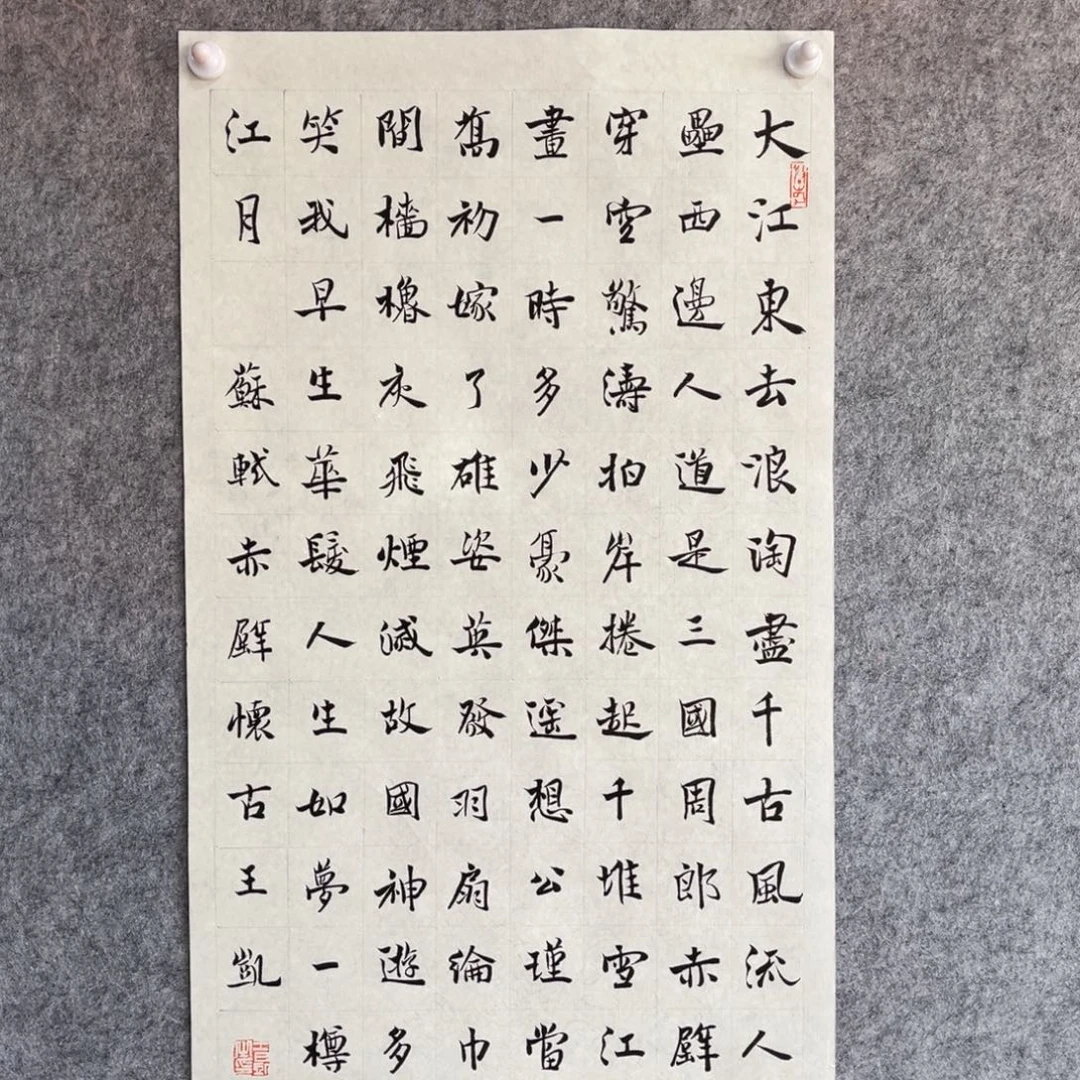 大江東去浪淘盡千古風流人
壘西邊人道是三國周郎赤壁
穿空驚濤拍岸捲起千堆雪江
畫一時多少豪傑遥想公瑾當
喬初嫁了雄姿英發羽扇綸巾
間檣櫓灰飛煙滅故國神遊多
笑我早生華髮人生如夢一樽
江月 蘇軾赤壁懷古王凱